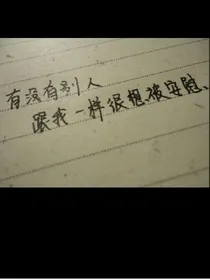 有没有别人
跟我一样很想被安慰、